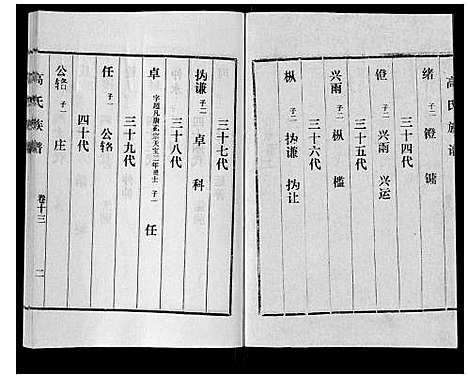 高氏族谱
绪 子二 镫 镛
三十四代
镫 子二 兴雨 兴运
三十五代
兴雨 子二 枞 槛
三十六代
枞 子二 㧑谦 㧑让
三十七代
㧑谦 子二 卓 科
三十八代
卓 字超凡 子一 任
三十九代
任 子一 公辂
四十代
公辂 子一 庄
高氏族谱 卷十三 二